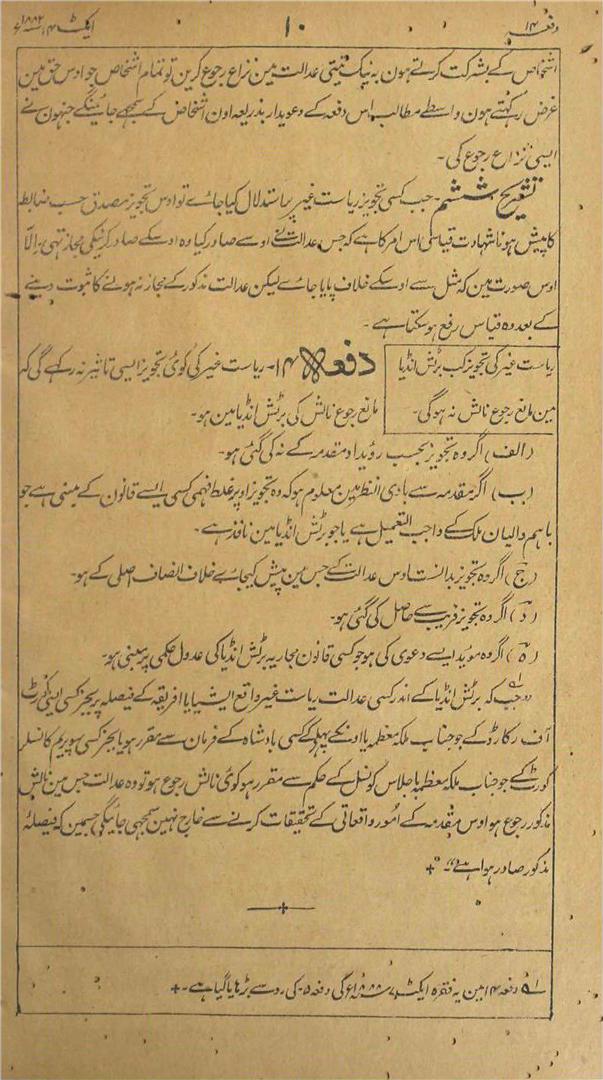 دفعہ ۱۴
۱۰
ایکٹ ۱۴ سنہ ۱۸۸۲ء
اشخاص کے بشرکت کرتے ہون بہ نیک نیتی عدالت مین نزاع رجوع کرین تو تمام اشخاص جو اوس حق مین
غرض رکہتے ہون واسطے مطالب اس دفعہ کے دعویدار بذریعہ اون اشخاص کے سمجھے جائینگے جنہون نے
ایسی نزاع رجوع کی۔
تشریح ششم۔ جب کسی تجویز ریاست غیر پر استدلال کیا جاے تو اوس تجویز مصدق حسب ضابطہ
کا پیش ہونا شہادت قیاسی اس امر کا ہے کہ جس عدالت نے اوسے صادر کیا وہ اوسکے صادر کرنیکی مجاز تہی۔ اِلّا
اوس صورت مین کہ مثل سے اوسکے خلاف پایا جاے لیکن عدالت مذکور کے مجاز نہ ہونے کا ثبوت دینے
کے بعد وہ قیاس رفع ہو سکتا ہے۔
ریاست غیر کی تجویز کب برٹش انڈیا
مین مانع رجوع نالش نہ ہوگی۔
دفعہ ۱۴۔ ریاست غیر کی کوئی تجویز ایسی تاثیر نہ رکہے گی کہ
مانع رجوع نالش کی برٹش انڈیا مین ہو۔
(الف) اگر وہ تجویز بحسب رؤیداد مقدمہ کے نہ کی گئی ہو۔
(ب) اگر مقدمہ سے بادی النظر مین معلوم ہو کہ وہ تجویز اوپر غلط فہمی کسی ایسے قانون کے مبنی ہے جو
باہم والیان ملک کے واجب التعمیل ہے یا جو برٹش انڈیا مین نافذ ہے۔
(ج) اگر وہ تجویز بدانست اوس عدالت کے جس مین پیش کیجاے خلاف انصاف اصلی کے ہو۔
(د) اگر وہ تجویز فریب سے حاصل کی گئی ہو۔
(ہ) اگر وہ موید ایسے دعوی کی ہو جو کسی قانون مجاریہ برٹش انڈیا کی عدول حکمی پر مبنی ہو۔
”جب کہ برٹش انڈیا کے اندر کسی عدالت ریاست غیر واقع ایشیا یا افریقہ کے فیصلہ پر بجز کسی ایسی کورٹ
آف رکارڈ کے جو جناب ملکہ معظمہ یا اونکے پہلے کے کسی بادشاہ کے فرمان سے مقرر ہو یا بجز کسی سوپریم کانسلر
کورٹ کے جو جناب ملکہ معظمہ باجلاس کونسل کے حکم سے مقرر ہو کوئی نالش رجوع ہو تو وہ عدالت جس مین نالش
مذکور رجوع ہو اوس مقدمہ کے اُمور واقعاتی کے تحقیقات کرنے سے خارج نہین سمجھی جائیگی جسمین کہ فیصلہ
مذکور صادر ہوا ہے“۔
لہ دفعہ ۱۴ مین یہ فقرہ ایکٹ ۷ سنہ ۱۸۸۸ء کی دفعہ ۵۔ کی رو سے بڑہایا گیا ہے۔